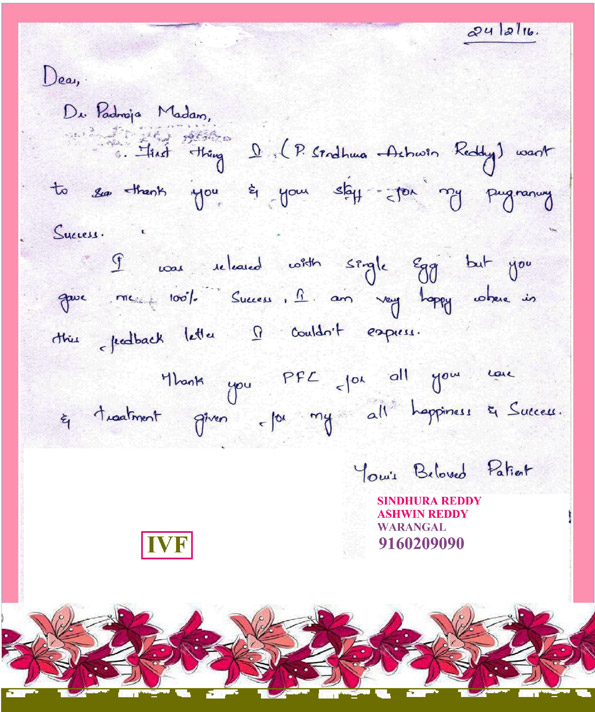 24/2/16.
Dear,
Dr Padmaja Madam,
First thing I, (P. Sindhura Ashwin Reddy) want
to thank you & your staff for my pregnancy
Success.
I was released with single Egg but you
gave me 100% Success, I am very happy where in
this feedback letter I couldn't express.
Thank you PFC for all your care
& treatment given for my all happiness & Success.
Your's Beloved Patient
SINDHURA REDDY
ASHWIN REDDY
WARANGAL
9160209090
IVF